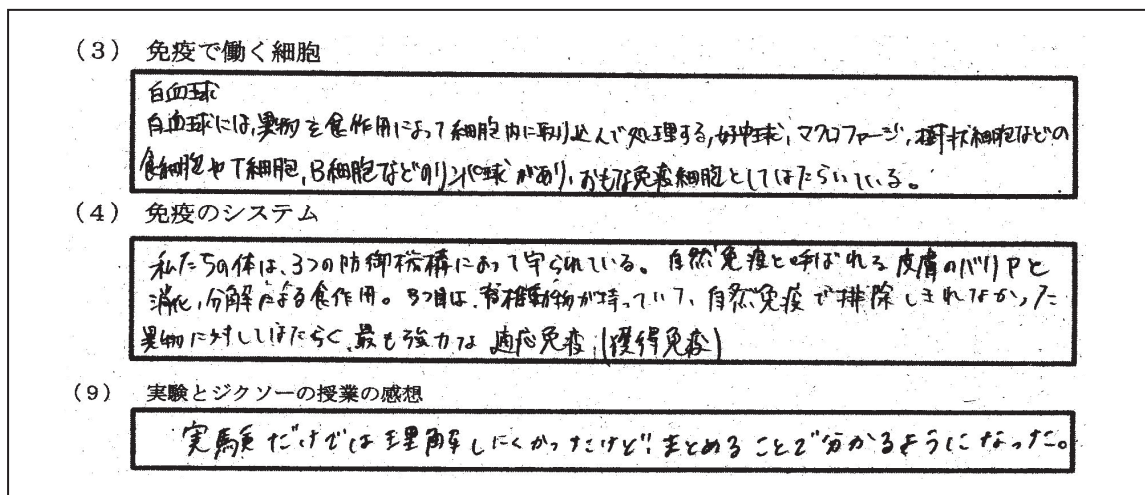 (3) 免疫で働く細胞
白血球
白血球には,異物を食作用によって細胞内に取り込んで処理する,好中球,マクロファージ,樹状細胞などの
食細胞やT細胞,B細胞などのリンパ球があり,おもな免疫細胞としてはたらいている。
(4) 免疫のシステム
私たちの体は、3つの防御機構によって守られている。自然免疫と呼ばれる皮膚のバリアと
消化,分解による食作用。3つ目は、脊椎動物が持っていて、自然免疫で排除しきれなかった
異物に対してはたらく、最も強力な適応免疫,(獲得免疫)
(9) 実験とジクソーの授業の感想
実験だけでは理解しにくかったけど、まとめることで分かるようになった。